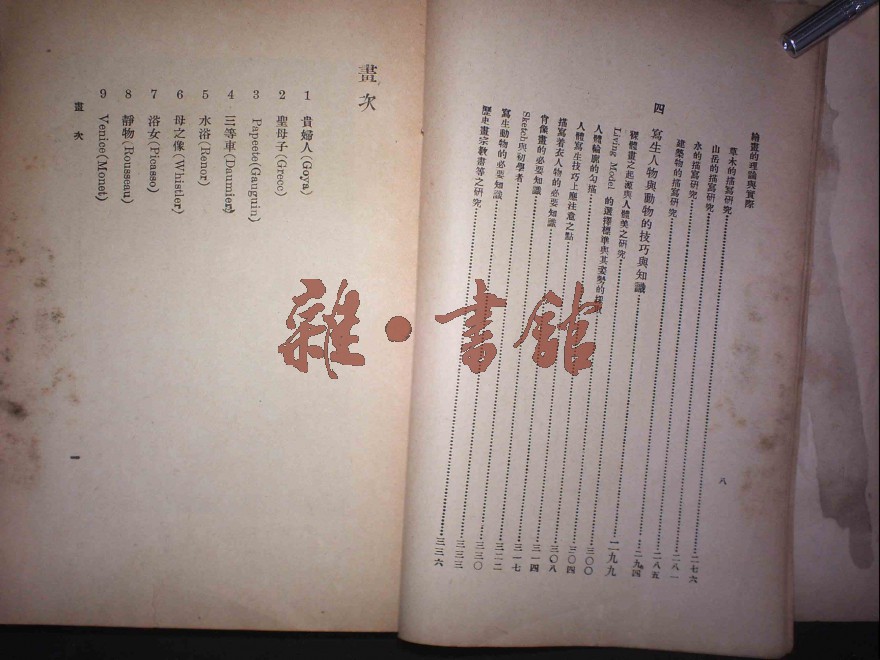 繪畫的理論與實際
八
草木的描寫研究……二七六
山岳的描寫研究……二八一
水的描寫研究……二八五
建築物的描寫研究……二九四
四 寫生人物與動物的技巧與知識……二九九
裸體畫之起源與人體美之研究……三〇〇
Living Model 的選擇標準與其姿勢的……三〇四
人體輪廓的勾描……三〇八
人體寫生技巧上應注意之點……三一四
描寫着衣人物的必要知識……三一七
肖像畫的必要知識……三二二
Sketch與初學者……三三〇
寫生動物的必要知識……三三三
歷史畫宗教畫等之研究……三三六
畫次
1 貴婦人(Goya)
2 聖母子(Greco)
3 Papeete(Gauguin)
4 三等車(Daumier)
5 水浴(Renor)
6 母之像(Whistler)
7 浴女(Picasso)
8 靜物(Rousseau)
9 Venice(Monet)
畫次
一
雜·書館